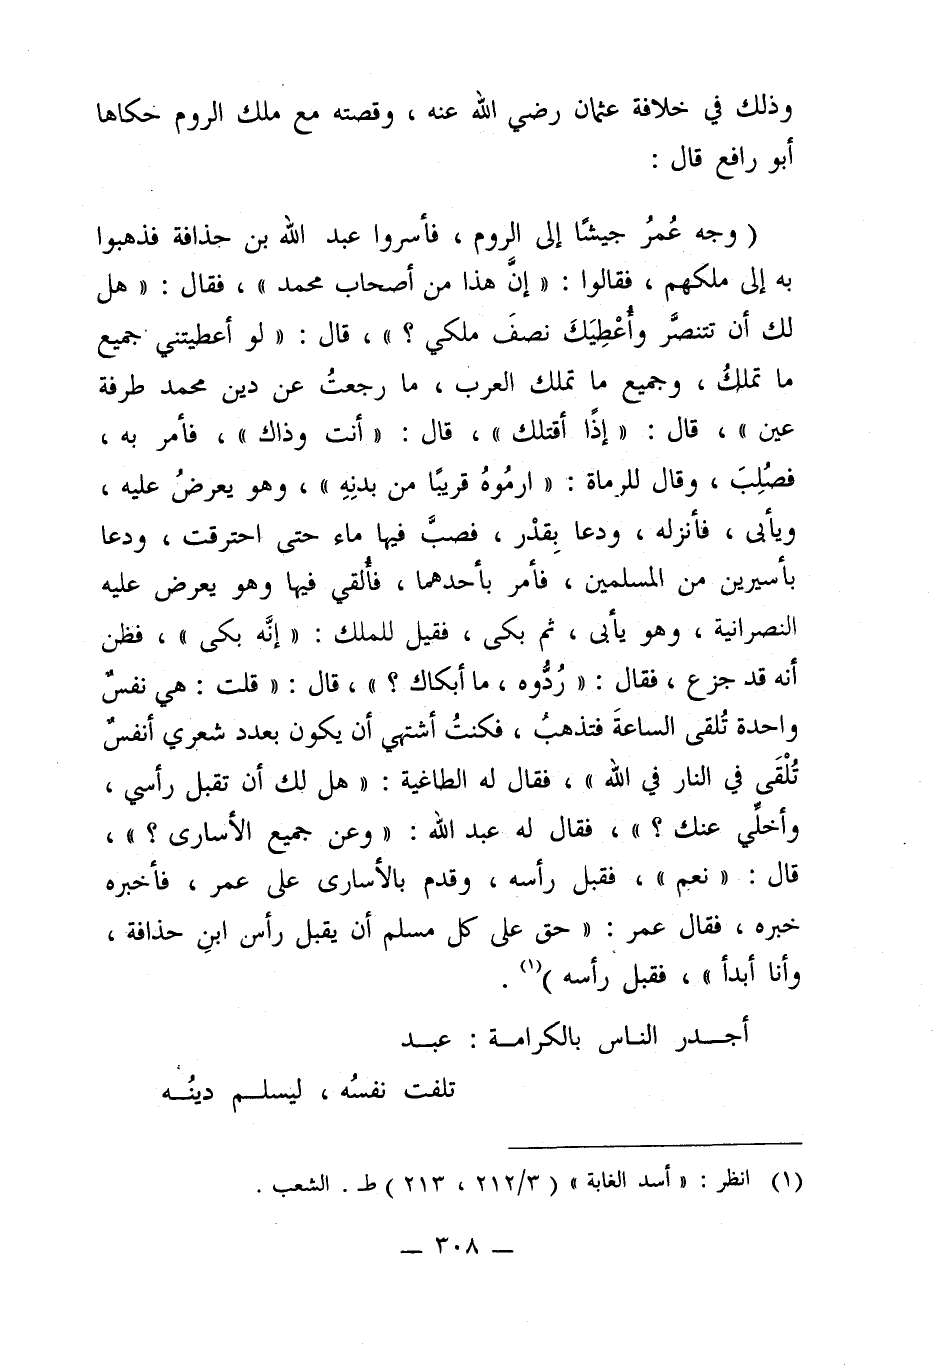 وذلك في خلافة عثمان رضي الله عنه ، وقصته مع ملك الروم حكاها
أبو رافع قال :
( وجه عُمرُ جيشًا إلى الروم ، فأسروا عبد الله بن حذافة فذهبوا
به إلى ملكهم ، فقالوا : « إنَّ هذا من أصحاب محمد » ، فقال : « هل
لك أن تتنصَّر وأُعْطِيَكَ نصفَ ملكي ؟ » ، قال : « لو أعطيتني جميع
ما تملكُ ، وجميع ما تملك العرب ، ما رجعتُ عن دين محمد طرفة
عين » ، قال : « إذًا أقتلك » ، قال : « أنت وذاك » ، فأمر به ،
فصُلِبَ ، وقال للرماة : « ارمُوهُ قريبًا من بدنِهِ » ، وهو يعرضُ عليه ،
ويأبى ، فأنزله ، ودعا بِقدْر ، فصبَّ فيها ماء حتى احترقت ، ودعا
بأسيرين من المسلمين ، فأمر بأحدهما ، فأُلقي فيها وهو يعرض عليه
النصرانية ، وهو يأبى ، ثم بكى ، فقيل للملك : « إنَّه بكى » ، فظن
أنه قد جزع ، فقال : « رُدُّوه ، ما أبكاك ؟ » ، قال : « قلت : هي نفسٌ
واحدة تُلقى الساعةَ فتذهبُ ، فكنتُ أشتهي أن يكون بعدد شعري أنفسٌ
تُلْقَى في النار في الله » ، فقال له الطاغية : « هل لك أن تقبل رأسي ،
وأخلِّي عنك ؟ » ، فقال له عبد الله : « وعن جميع الأسارى ؟ » ،
قال : « نعم » ، فقبل رأسه ، وقدم بالأسارى على عمر ، فأخبره
خبره ، فقال عمر : « حق على كل مسلم أن يقبل رأس ابنِ حذافة ،
وأنا أبدأ » ، فقبل رأسه )(١) .
أجـــدر النـاس بالكرامـــة : عبـــد
تلفت نفسُه ، ليسلـــم دينُـــه
(١) انظر : « أسد الغابة » ( ٢١٢/٣ ، ٢١٣ ) ط . الشعب .
ــ ٣٠٨ ــ